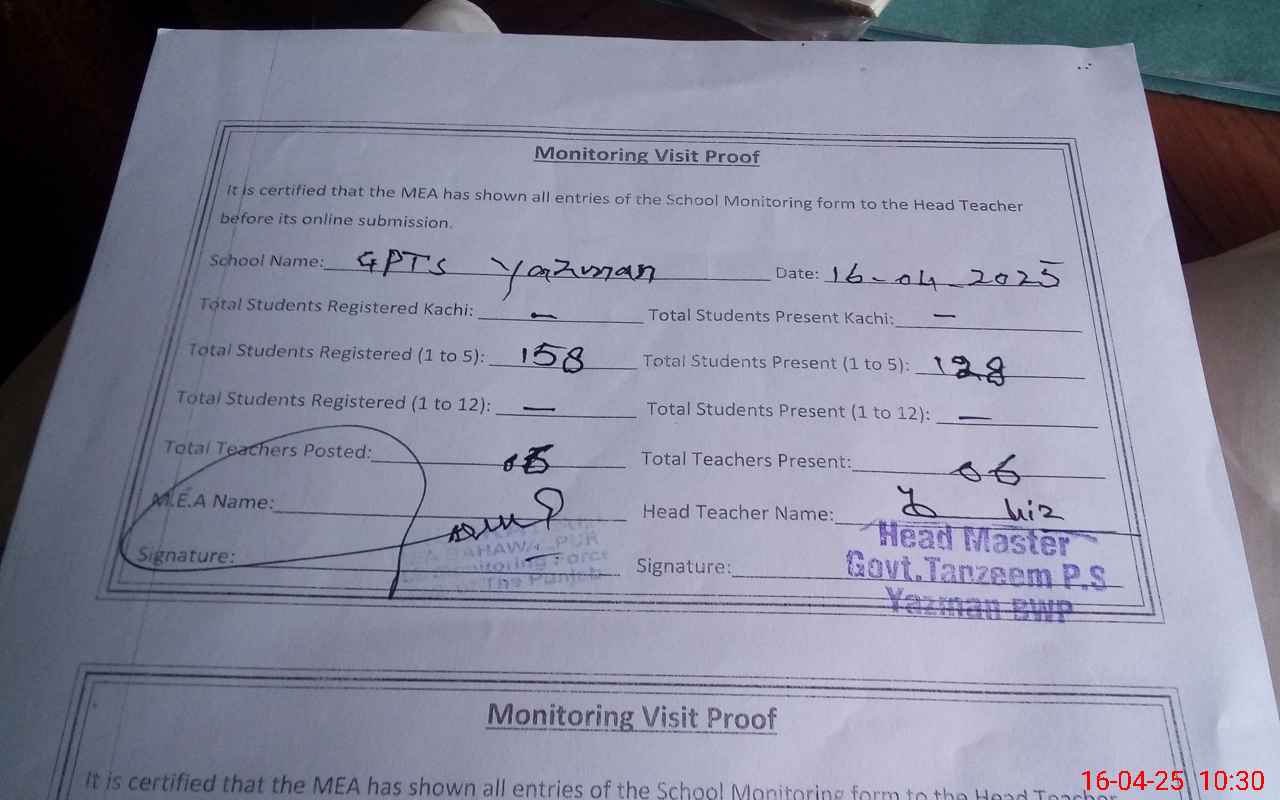 Monitoring Visit Proof
It is certified that the MEA has shown all entries of the School Monitoring form to the Head Teacher
before its online submission.
School Name: GPTS Yazman Date: 16-04-2025
Total Students Registered Kachi: — Total Students Present Kachi: —
Total Students Registered (1 to 5): 158 Total Students Present (1 to 5): 128
Total Students Registered (1 to 12): — Total Students Present (1 to 12): —
Total Teachers Posted: 06 Total Teachers Present: 06
M.E.A Name: Head Teacher Name:
Signature: Signature:
Monitoring Force
The Punjab
Head Master
Govt.Tanzeem P.S
Yazman BWP
Monitoring Visit Proof
It is certified that the MEA has shown all entries of the School Monitoring form to the Head Teacher
16-04-25 10:30